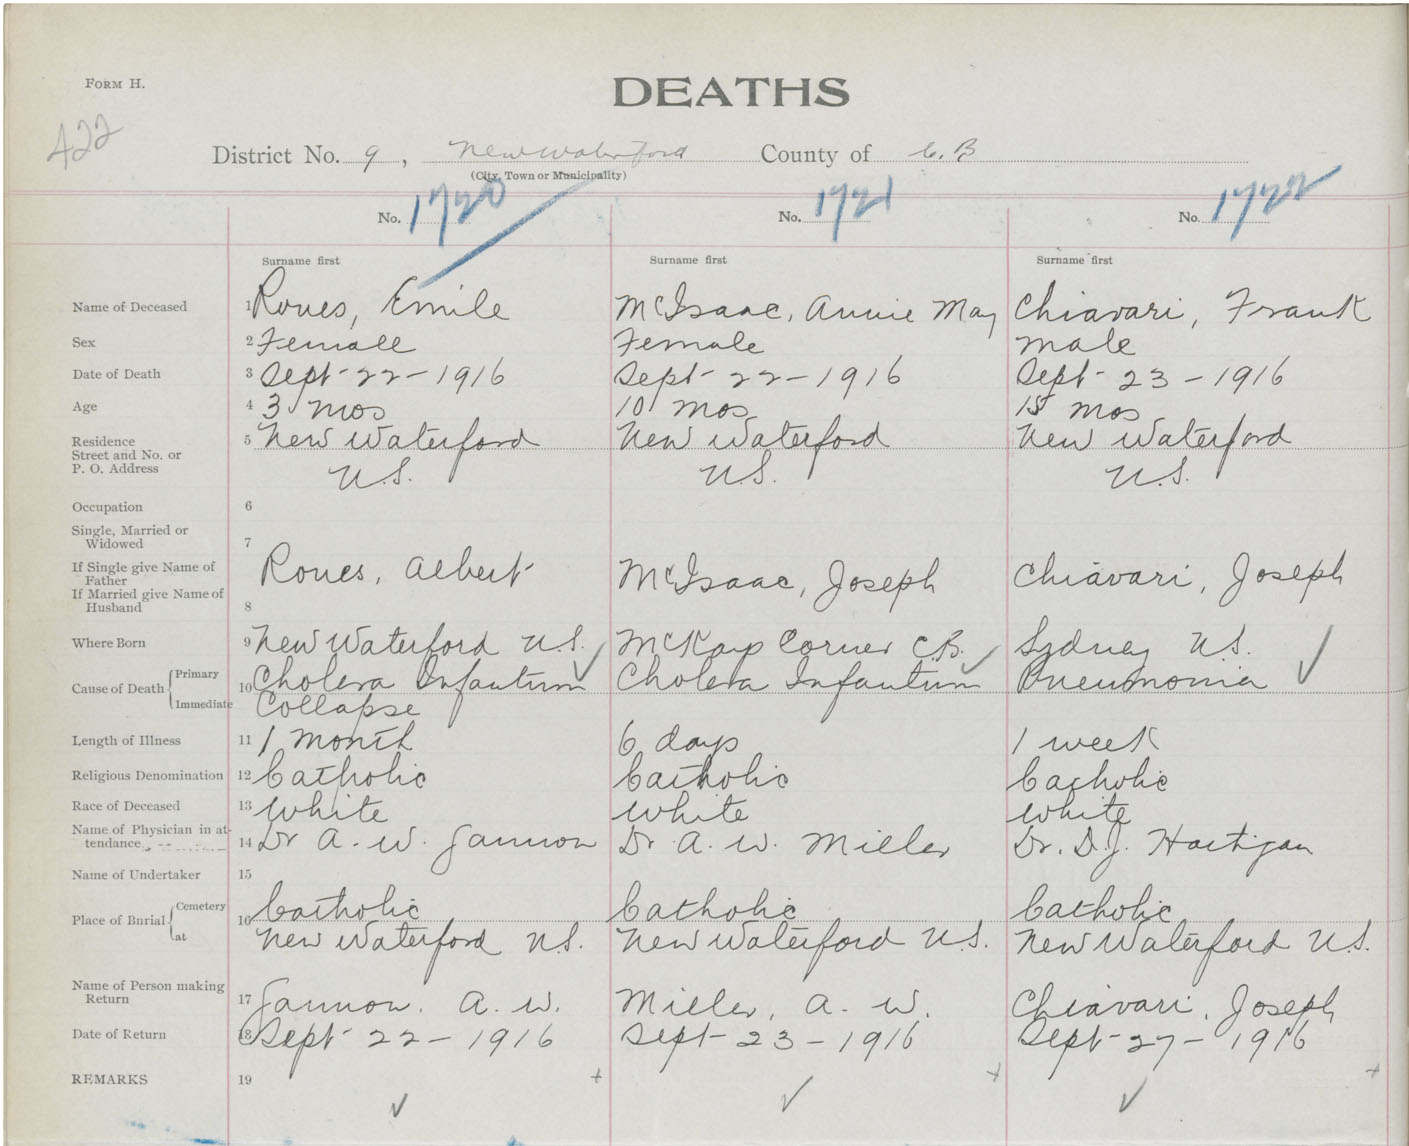 FORM H.
DEATHS
422
District No. 9, New Waterford County of C.B
(City, Town or Municipality)
No. 1720 No. 1721 No. 1722
Surname first Surname first Surname first
Name of Deceased 1 Roues, Emile McIsaac, Annie May Chiavari, Frank
Sex 2 Female Female male
Date of Death 3 Sept-22-1916 Sept-22-1916 Sept-23-1916
Age 4 3 mos 10 mos 15 mos
Residence 5 New Waterford New Waterford New Waterford
Street and No. or
P. O. Address N.S. N.S. N.S.
Occupation 6
Single, Married or
Widowed 7
If Single give Name of
Father Roues, Albert McIsaac, Joseph Chiavari, Joseph
If Married give Name of
Husband 8
Where Born 9 New Waterford N.S. McKays Corner C.B. Sydney N.S.
Cause of Death Primary 10 Cholera Infantum Cholera Infantum Pneumonia
Immediate Collapse
Length of Illness 11 1 month 6 days 1 week
Religious Denomination 12 Catholic Catholic Catholic
Race of Deceased 13 White White White
Name of Physician in at-
tendance 14 Dr A. W. Gannon Dr. A. W. Miller Dr. D.J. Hartigan
Name of Undertaker 15
Place of Burial Cemetery 16 Catholic Catholic Catholic
at New Waterford N.S. New Waterford N.S. New Waterford N.S.
Name of Person making
Return 17 Gannon. A. W. Miller, A. W. Chiavari, Joseph
Date of Return 18 Sept-22-1916 Sept-23-1916 Sept-27-1916
REMARKS 19